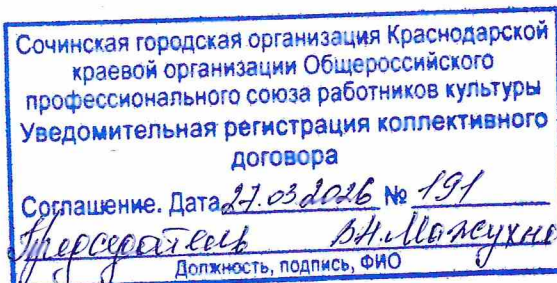 Сочинская городская организация Краснодарской
краевой организации Общероссийского
профессионального союза работников культуры
Уведомительная регистрация коллективного
договора
Соглашение. Дата 27.03.2026 № 191
Председатель В.Н. Мажухно
Должность, подпись, ФИО